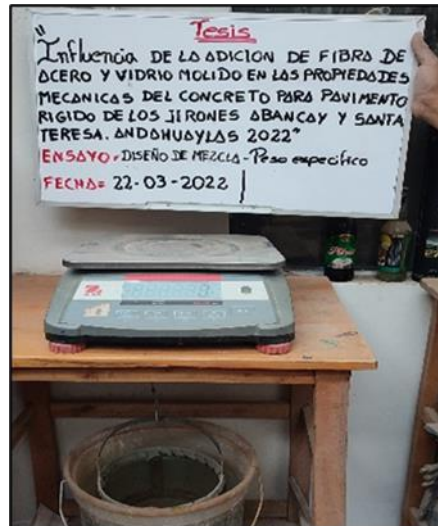 Tesis
"Influencia DE LA ADICION DE FIBRA DE
ACERO Y VIDRIO MOLIDO EN LAS PROPIEDADES
MECANICAS DEL CONCRETO PARA PAVIMENTO
RIGIDO DE LOS JIRONES ABANCAY Y SANTA
TERESA. ANDAHUAYLAS 2022"
ENSAYO= DISEÑO DE MEZCLA - Peso especifico
FECHA= 22-03-2022